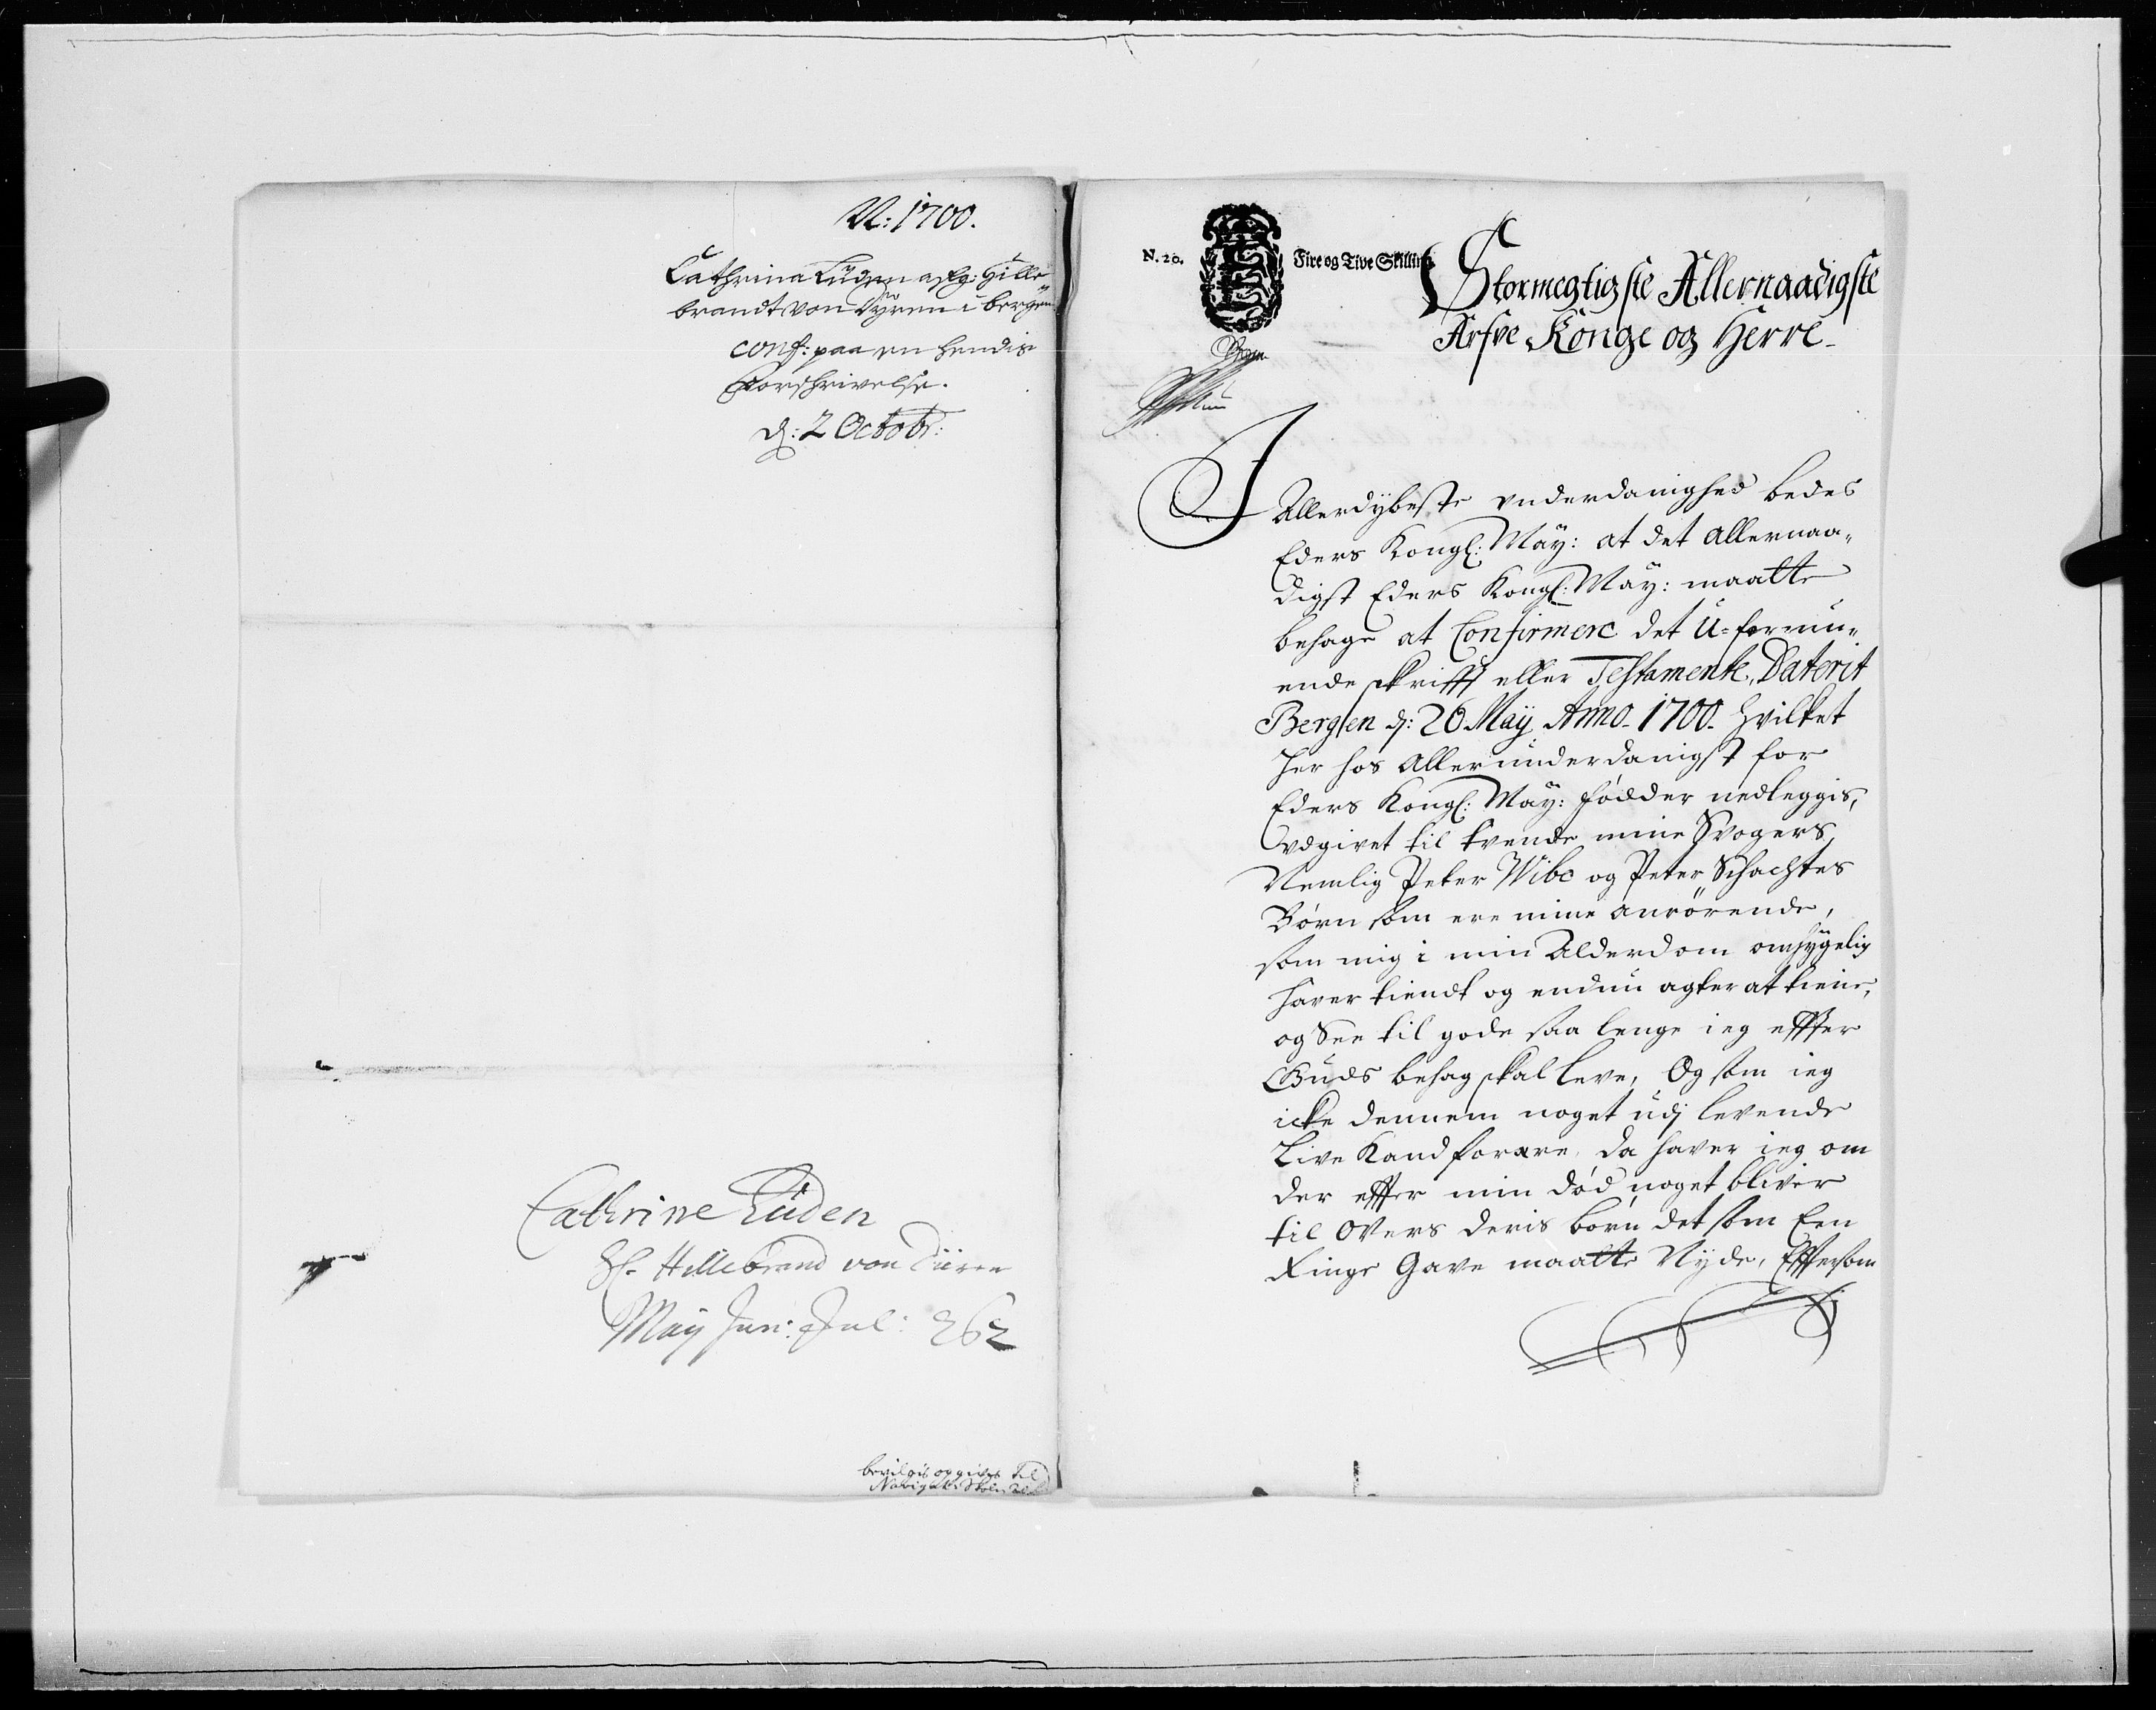 N: 1700.
Cathrina Lüden afg: Hille„
brandt von Dyren i bergen
conf: paa en hendis
Forschrivelse.
d: 2 Octobr:
Cathrine Lüden
Sl. Hillebrand von Düren
May Jun: Jul: 262
bevilgis og gives til
Navigat: Skolen
N. 20.
Fire og Tive Skilling
Stormegtigste Allernaadigste
Arfve Konge og Herre
I Allerdybeste underdanighed bedes
Eders Kongl: May: at det allernaa„
digst Eders Kongl: May: maatte
behage at Confirmere det U=forvin„
ende skrifft eller Testamente, Daterit
Bergen d: 26 May Anno 1700. hvilket
her hos allerunderdanigst for
Eders Kongl: May: fødder nedleggis,
vdgivet til tvende mine Svogers,
Nemlig Peter Wibe og Peter Schachtes
Børn som ere mine anrørende,
som mig i min Alderdom omhygelig
haver tient og endnu agter at tiene,
og See til gode saa lenge ieg effter
Guds behag skal leve, Og som ieg
icke dennem noget udj levende
Live Kand forære, da haver ieg om
der effter min død noget bliver
til overs deris børn det som Een
Ringe Gave maatte Nyde, Efftersom